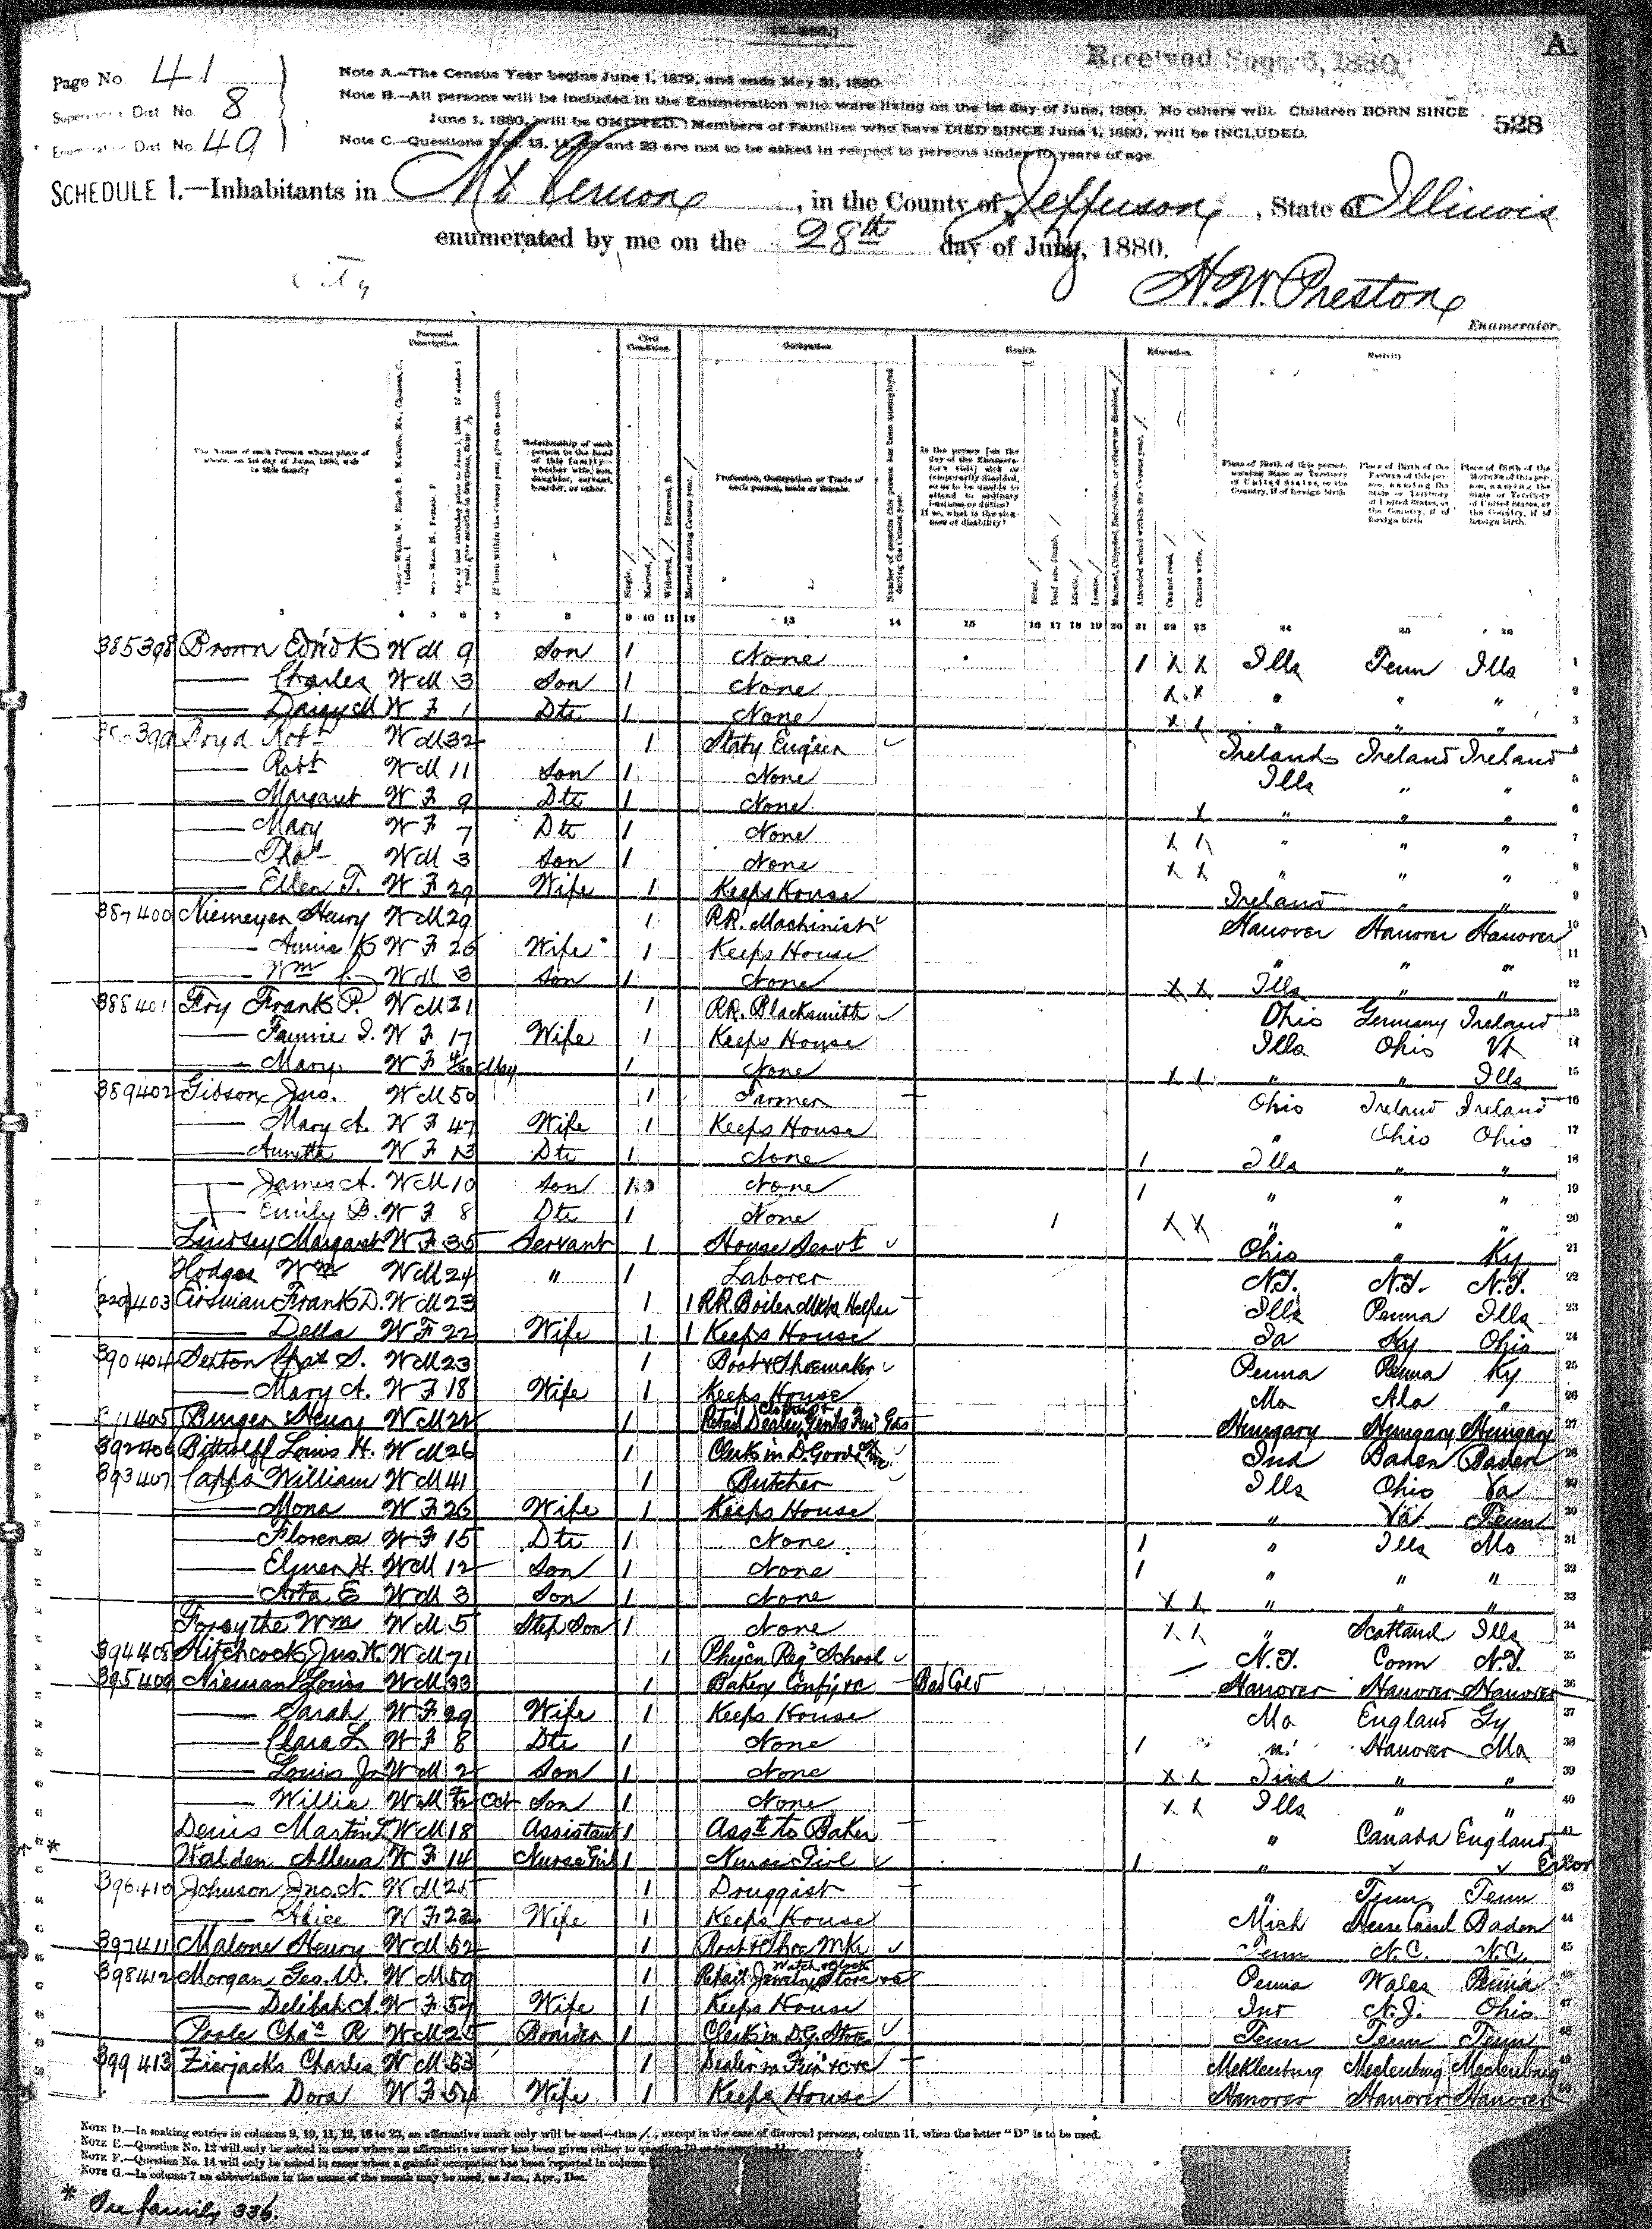 Received Sept. 6, 1880.
A
Page No. 41
Note A.—The Census Year begins June 1, 1879, and ends May 31, 1880.
Supervisor's Dist. No. 8
Note B.—All persons will be included in the Enumeration who were living on the 1st day of June, 1880. No others will. Children BORN SINCE
June 1, 1880, will be OMITTED. Members of Families who have DIED SINCE June 1, 1880, will be INCLUDED.
528
Enumeration Dist. No. 49
Note C.—Questions Nos. 13, 14, 22 and 23 are not to be asked in respect to persons under 10 years of age.
SCHEDULE 1.—Inhabitants in Mt Vernon, in the County of Jefferson, State of Illinois
enumerated by me on the 28th day of July, 1880.
City
H. W. Preston
Enumerator.
Personal Description. Civil Condition. Occupation. Health. Education. Nativity.
3 4 5 6 7 8 9 10 11 12 13 14 15 16 17 18 19 20 21 22 23 24 25 26
385 398 Brown Edw'd K W M 9 Son 1 None 1 X X Ills Tenn Ills 1
—— Charles W M 3 Son 1 None X X " " " 2
—— Daisy M W F 1 Dtr 1 None X X " " " 3
399 Boyd Robt W M 32 1 Staty Engeen Ireland Ireland Ireland 4
—— Robt W M 11 Son 1 None Ills " " 5
—— Margaret W F 9 Dtr 1 None X " " " 6
—— Mary W F 7 Dtr 1 None X X " " " 7
—— Thos W M 3 Son 1 None X X " " " 8
—— Ellen T. W F 29 Wife 1 Keeps House Ireland " " 9
387 400 Niemeyer Henry W M 29 1 R.R. Machinist Hanover Hanover Hanover 10
—— Annie K W F 26 Wife 1 Keeps House " " " 11
—— Wm W M 3 Son 1 None X X Ills " " 12
388 401 Fry Frank P. W M 21 1 R.R. Blacksmith Ohio Germany Ireland 13
—— Fannie I. W F 17 Wife 1 Keeps House Ills Ohio Vt 14
—— Mary W F May 1 None X X " " Ills 15
389 402 Gibson Jno. W M 50 1 Farmer Ohio Ireland Ireland 16
—— Mary A. W F 47 Wife 1 Keeps House " Ohio Ohio 17
—— Annetta W F 13 Dtr 1 None 1 Ills " " 18
—— James A. W M 10 Son 1 None 1 " " " 19
—— Emily B. W F 8 Dtr 1 None 1 X X " " " 20
Lindsey Margaret W F 35 Servant 1 House Servt Ohio " Ky 21
Hodges Wm W M 24 " 1 Laborer N.Y. N.Y. N.Y. 22
403 Frank D. W M 23 1 1 RR Boiler Mkrs Helper Ills Penna Ills 23
—— Della W F 22 Wife 1 1 Keeps House Ia Ky Ohio 24
390 404 Sexton Chas S. W M 23 1 Boot & Shoemaker Penna Penna Ky 25
—— Mary A. W F 18 Wife 1 Keeps House Mo Ala " 26
405 Burger Henry W M 22 1 Retail Dealer Clothing & Gents Fur Gds Hungary Hungary Hungary 27
392 406 Bittrolff Louis H. W M 26 1 Clerk in D. Goods Ind Baden Baden 28
393 407 Capps William W M 41 1 Butcher Ills Ohio Va 29
—— Mona W F 26 Wife 1 Keeps House " Va Tenn 30
—— Florence W F 15 Dtr 1 None 1 " Ills Mo 31
—— Elmer H. W M 12 Son 1 None 1 " " " 32
—— Arta E W M 3 Son 1 None X X " " " 33
Forsythe Wm W M 5 Step Son 1 None X X " Scotland Ills 34
394 408 Hitchcock Jno. W M 71 1 Phyicn Reg' School N.Y. Conn N.Y. 35
395 409 Nieman Louis W M 33 1 Bakery Conf'y &c Bad Cold Hanover Hanover Hanover 36
—— Sarah W F 29 Wife 1 Keeps House Mo England Gy 37
—— Clara L. W F 8 Dtr 1 None 1 " Hanover Mo 38
—— Louis Jr W M 2 Son 1 None X X Ind " " 39
—— Willie W M Oct Son 1 None X X Ills " " 40
Denis Martin L W M 18 Assistant 1 Asst to Baker " Canada England 41
* Walden Allena W F 14 Nurse Girl 1 Nurse Girl 1 " Error
396 410 Johnson Jno. N. W M 25 1 Douggist " Tenn Tenn 43
—— Alice W F 22 Wife 1 Keeps House Mich Hesse Cassel Baden 44
397 411 Malone Henry W M 52 1 Boot & Shoe Mkr Tenn N.C. N.C. 45
398 412 Morgan Geo. W. W M 59 1 Retail Jewelry Watch & Clock Store Penna Wales Penna 46
—— Delilah A. W F 54 Wife 1 Keeps House Ind N.J. Ohio 47
Poole Chas R W M 25 Boarder 1 Clerk in D.G. Store Tenn Tenn Tenn 48
399 413 Zierjacks Charles W M 53 1 Dealer in Furn &c &c Meklenburg Meclenburg Meclenburg 49
—— Dora W F 54 Wife 1 Keeps House Hanover Hanover Hanover 50
NOTE D.—In making entries in columns 9, 10, 11, 12, 16 to 23, an affirmative mark only will be used—thus /, except in the case of divorced persons, column 11, when the letter "D" is to be used.
NOTE E.—Question No. 12 will only be asked in cases where an affirmative answer has been given either to question 10 or to question 11.
NOTE F.—Question No. 14 will only be asked in cases when a gainful occupation has been reported in column
NOTE G.—In column 7 an abbreviation in the name of the month may be used, as Jan., Apr., Dec.
* See family 336.